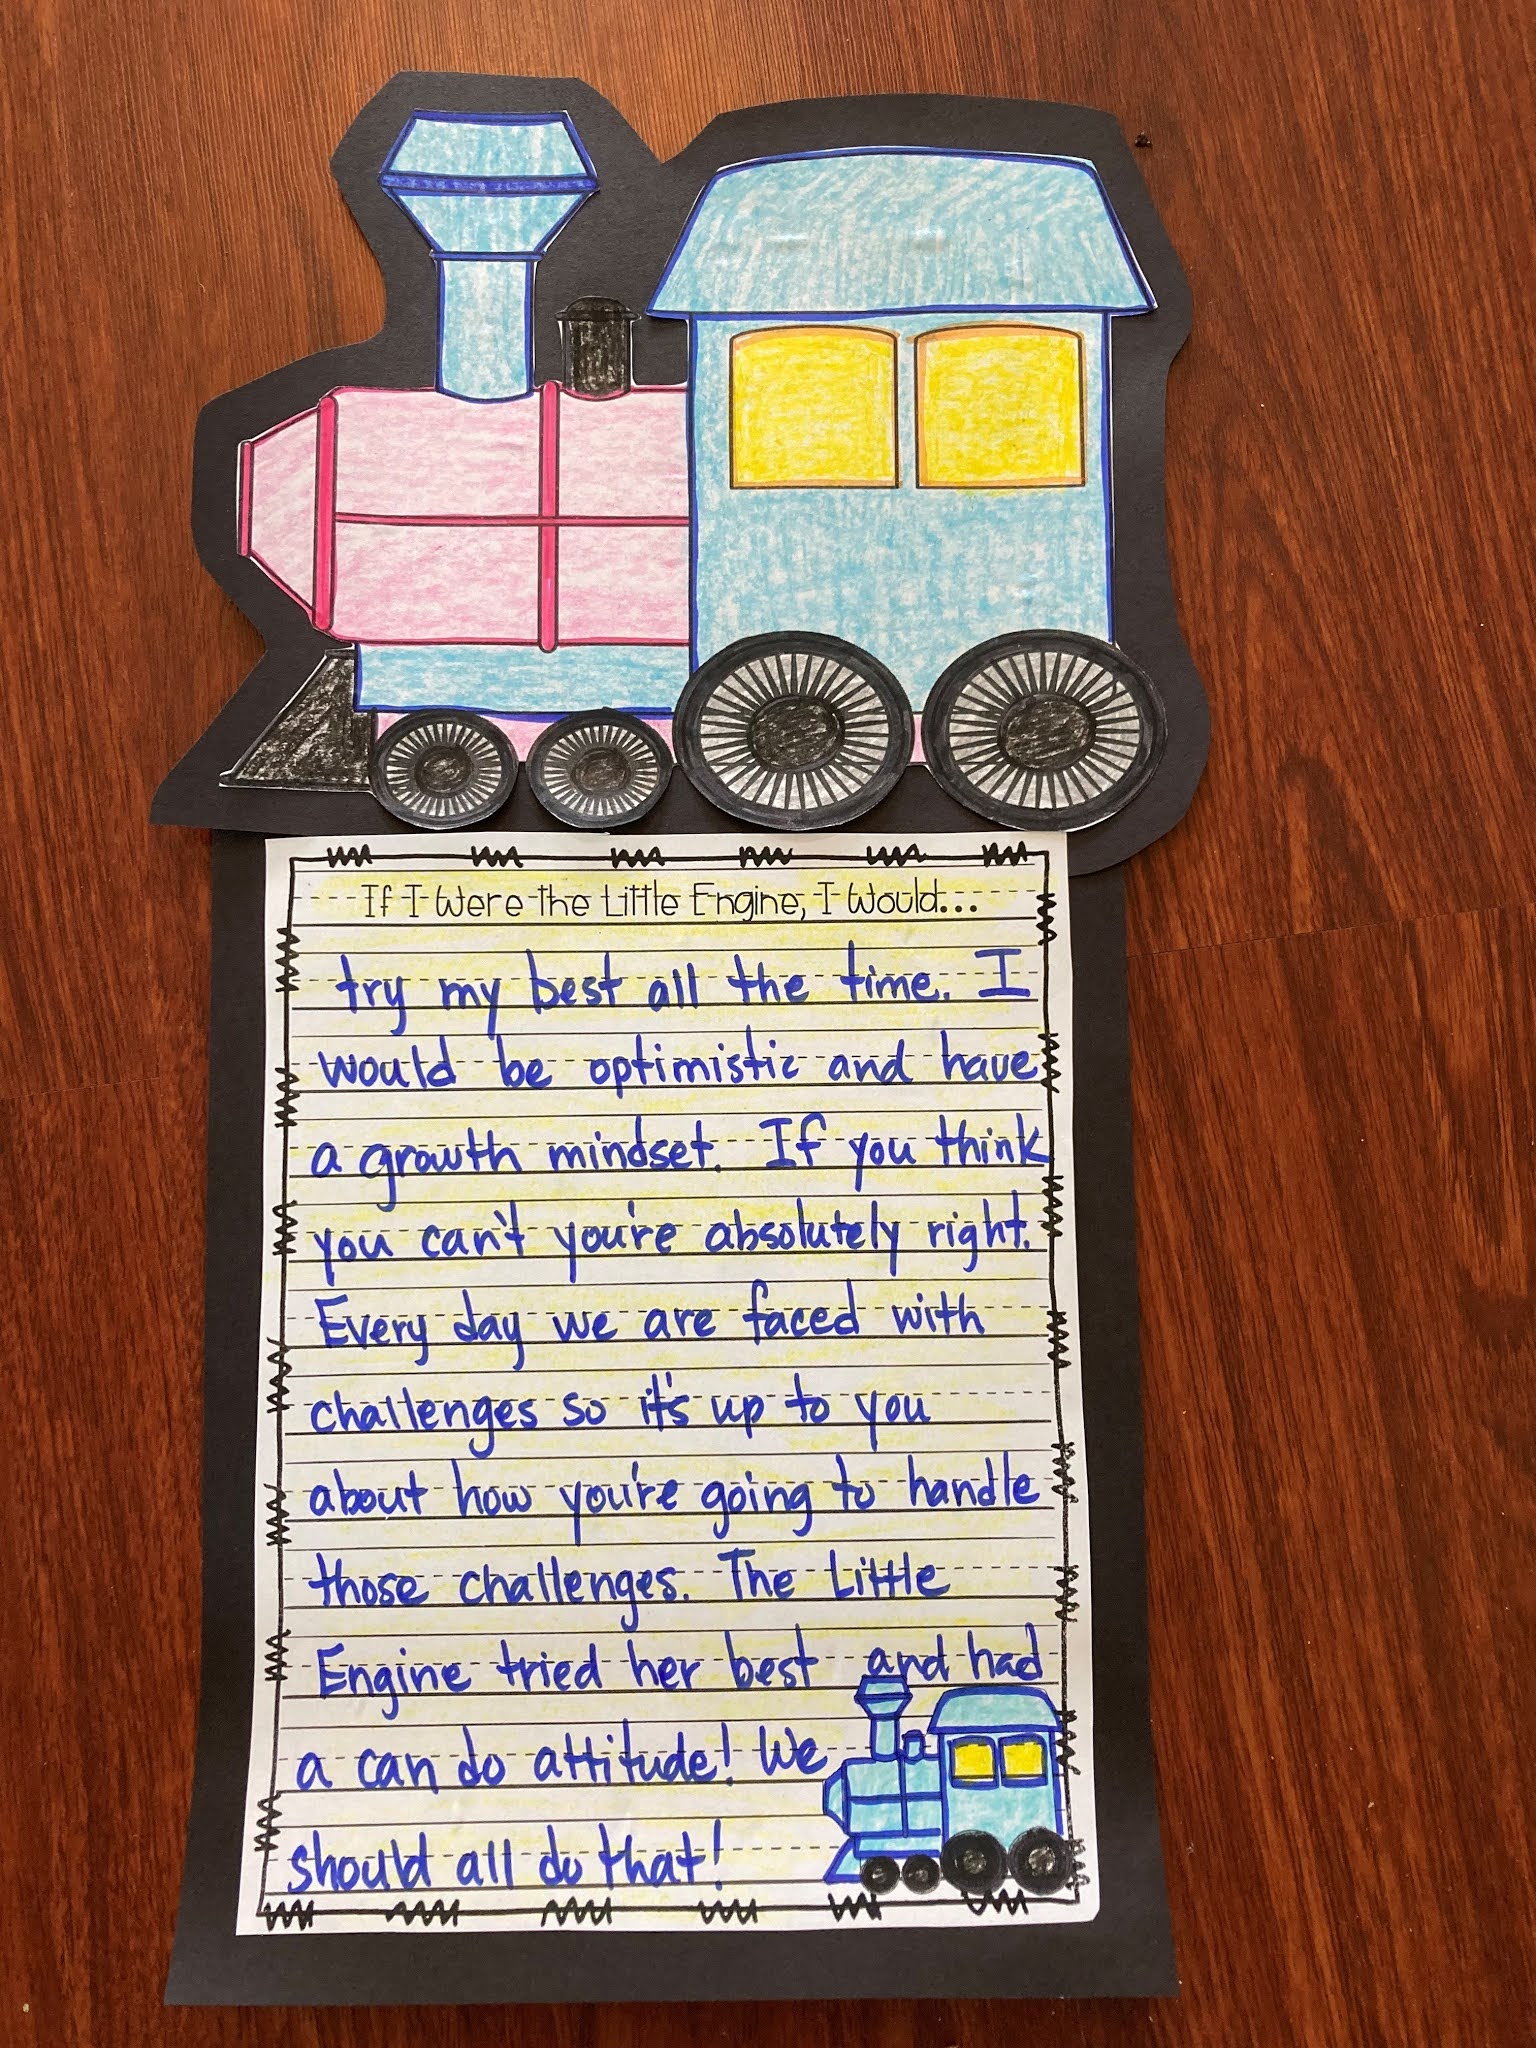 If I Were the Little Engine, I Would...
try my best all the time. I
would be optimistic and have
a growth mindset. If you think
you can't you're absolutely right.
Every day we are faced with
challenges so it's up to you
about how you're going to handle
those challenges. The Little
Engine tried her best and had
a can do attitude! We
should all do that!